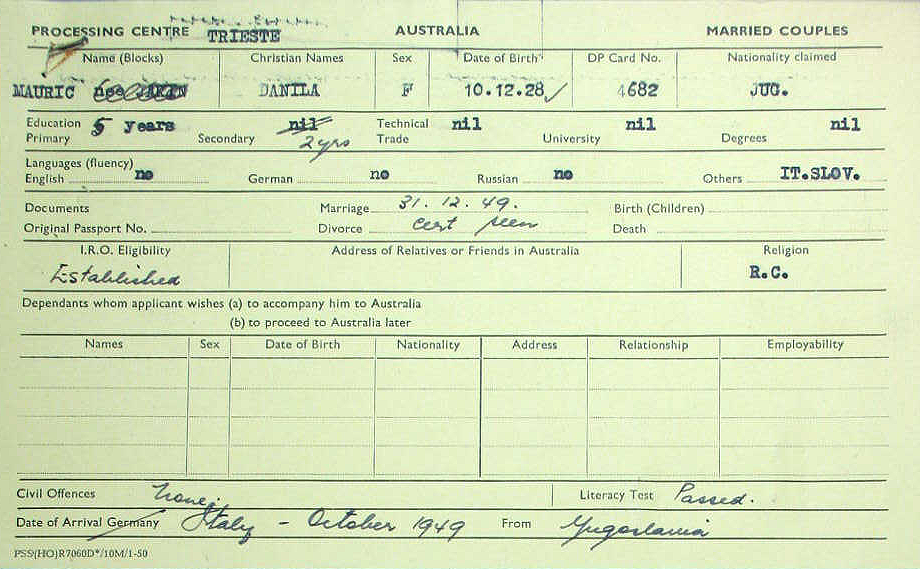 PROCESSING CENTRE TRIESTE AUSTRALIA MARRIED COUPLES
Name (Blocks) Christian Names Sex Date of Birth DP Card No. Nationality claimed
MAURIC nee DANILA F 10.12.28 4682 JUG.
Education
Primary 5 years Secondary nil 2 yrs Technical Trade nil University nil Degrees nil
Languages (fluency)
English no German no Russian no Others IT.SLOV.
Documents Marriage 31.12.49. Birth (Children)
Original Passport No. Divorce cert seen Death
I.R.O. Eligibility Address of Relatives or Friends in Australia Religion
Established R.C.
Dependants whom applicant wishes (a) to accompany him to Australia
(b) to proceed to Australia later
Names Sex Date of Birth Nationality Address Relationship Employability
Civil Offences None. Literacy Test Passed.
Date of Arrival Germany Italy - October 1949 From Yugoslavia
PSS(HO)R7060D*/10M/1-50